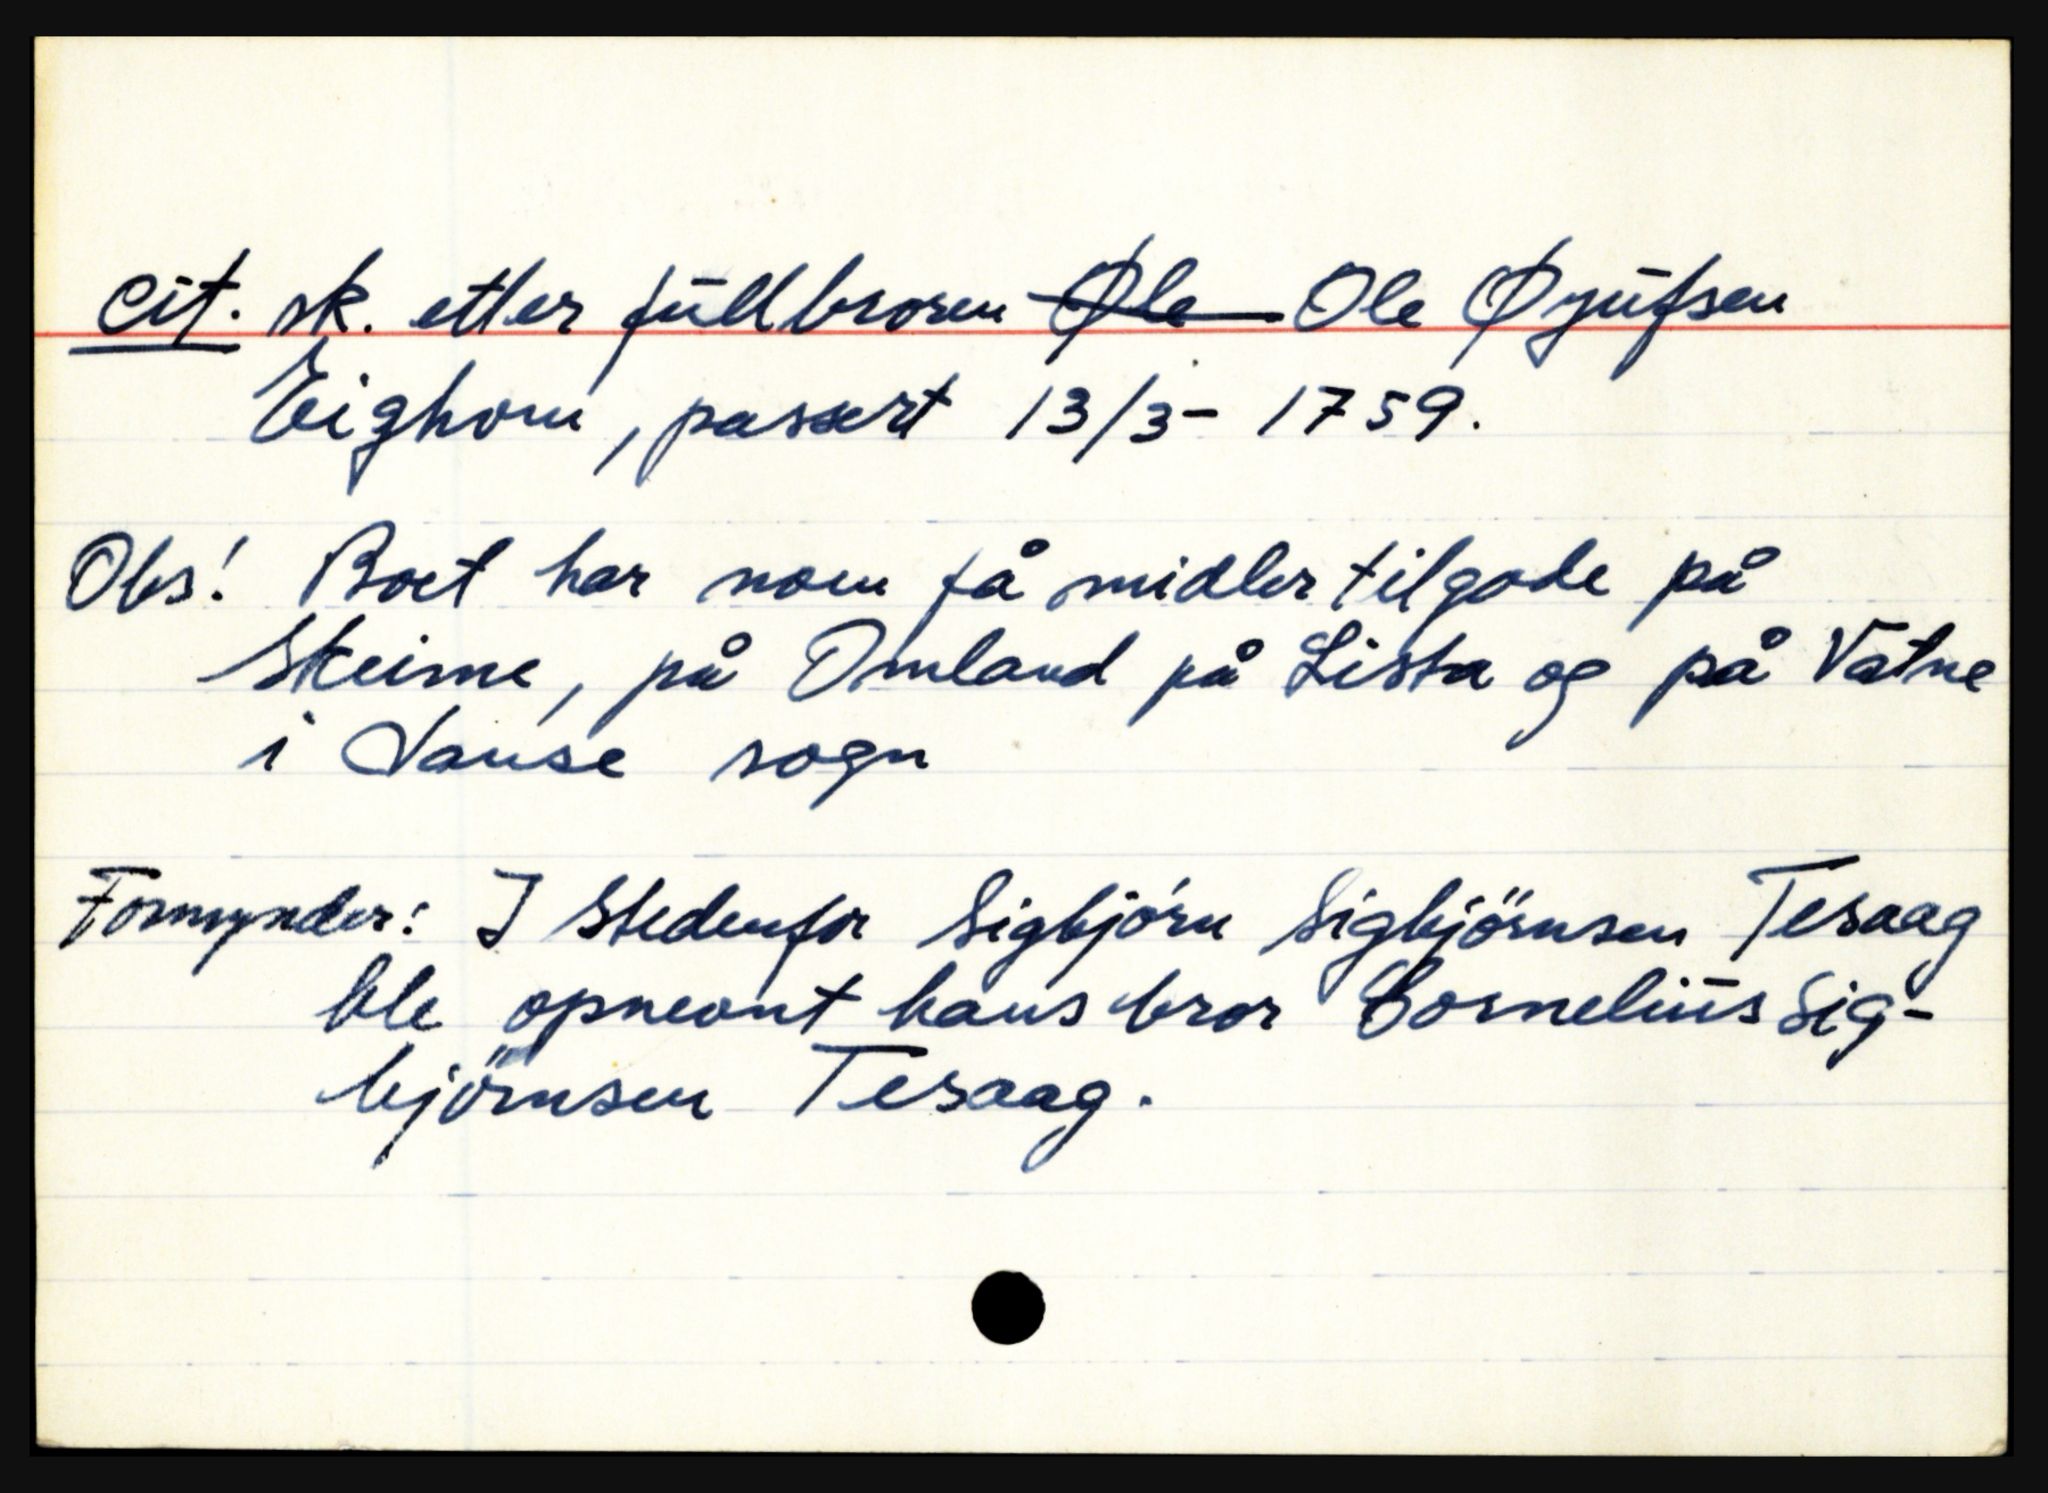 cit. sk. etter fullbroren ~~Øle~~ Ole Øyufsen
Eighom, passert 13/3- 1759.
Obs! Boet har noen få midler tilgode på
Skeime, på Omland på Lista og på Vatne
i Vanse sogn
Formynder: I Stedenfor Sigbjörn Sigbjörnsen Tesaag
ble opneont hans bror Cornelius Sig-
björnsen Tesaag.